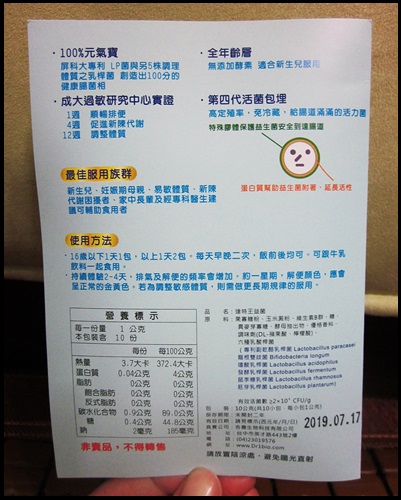 ・100%元氣寶
屏科大專利 LP菌與另5株調理
體質之乳桿菌 創造出100分的
健康腸菌相
・全年齡層
無添加酵素 適合新生兒服用
・成大過敏研究中心實證
1週 順暢排便
4週 促進新陳代謝
12週 調整體質
・第四代活菌包埋
高定殖率，免冷藏，給腸道滿滿的活力菌
特殊膠體保護益生菌安全到達腸道
蛋白質幫助益生菌附著、延長活性
最佳服用族群
新生兒、妊娠期母親、易敏體質、新陳
代謝困擾者、家中長輩及經專科醫生建
議可輔助食用者
使用方法
・16歲以下1天1包，以上1天2包，每天早晚二次，飯前後均可。可跟牛乳
飲料一起食用。
・持續體驗2-4天，排氣及解便的頻率會增加。約一星期，解便顏色，應會
呈正常的金黃色。若為調整敏感體質，則需做更長期規律的服用。
營養標示
每一份量 1 公克
本包裝含 10 份
每份 每100公克
熱量 3.7大卡 372.4大卡
蛋白質 0.04公克 4公克
脂肪 0公克 0公克
飽合脂肪 0公克 0公克
反式脂肪 0公克 0公克
碳水化合物 0.9公克 89.0公克
糖 0.4公克 44.8公克
鈉 2毫克 185毫克
非賣品，不得轉售
品 名：達特王益菌
原 料：果寡糖粉、玉米澱粉、維生素B群、糖、
異麥芽寡糖、酵母抽出物、優格香料、
調味劑(DL-蘋果酸、檸檬酸)、
六種乳酸桿菌
(專利副乾酪乳桿菌 Lactobacillus paracasei
龍根雙歧菌 Bifidobacteria longum
嗜酸乳桿菌 Lactobacillus acidophilus
發酵乳桿菌 Lactobacillus fermentum
洛德乳桿菌 Lactobacillus rhamnosus
胚芽乳桿菌 Lactobacillus plantarum)
有效活菌數 ≥2×10⁹ CFU/g
包 裝：10公克(共10小包，每小包1公克)
有效期限：未開封二年
有效日期：請見標示(西元年/月/日)
電 話：(04)23019576
網 址：www.Dr1bio.com
2019.07.17
請放置陰涼處，避免陽光直射